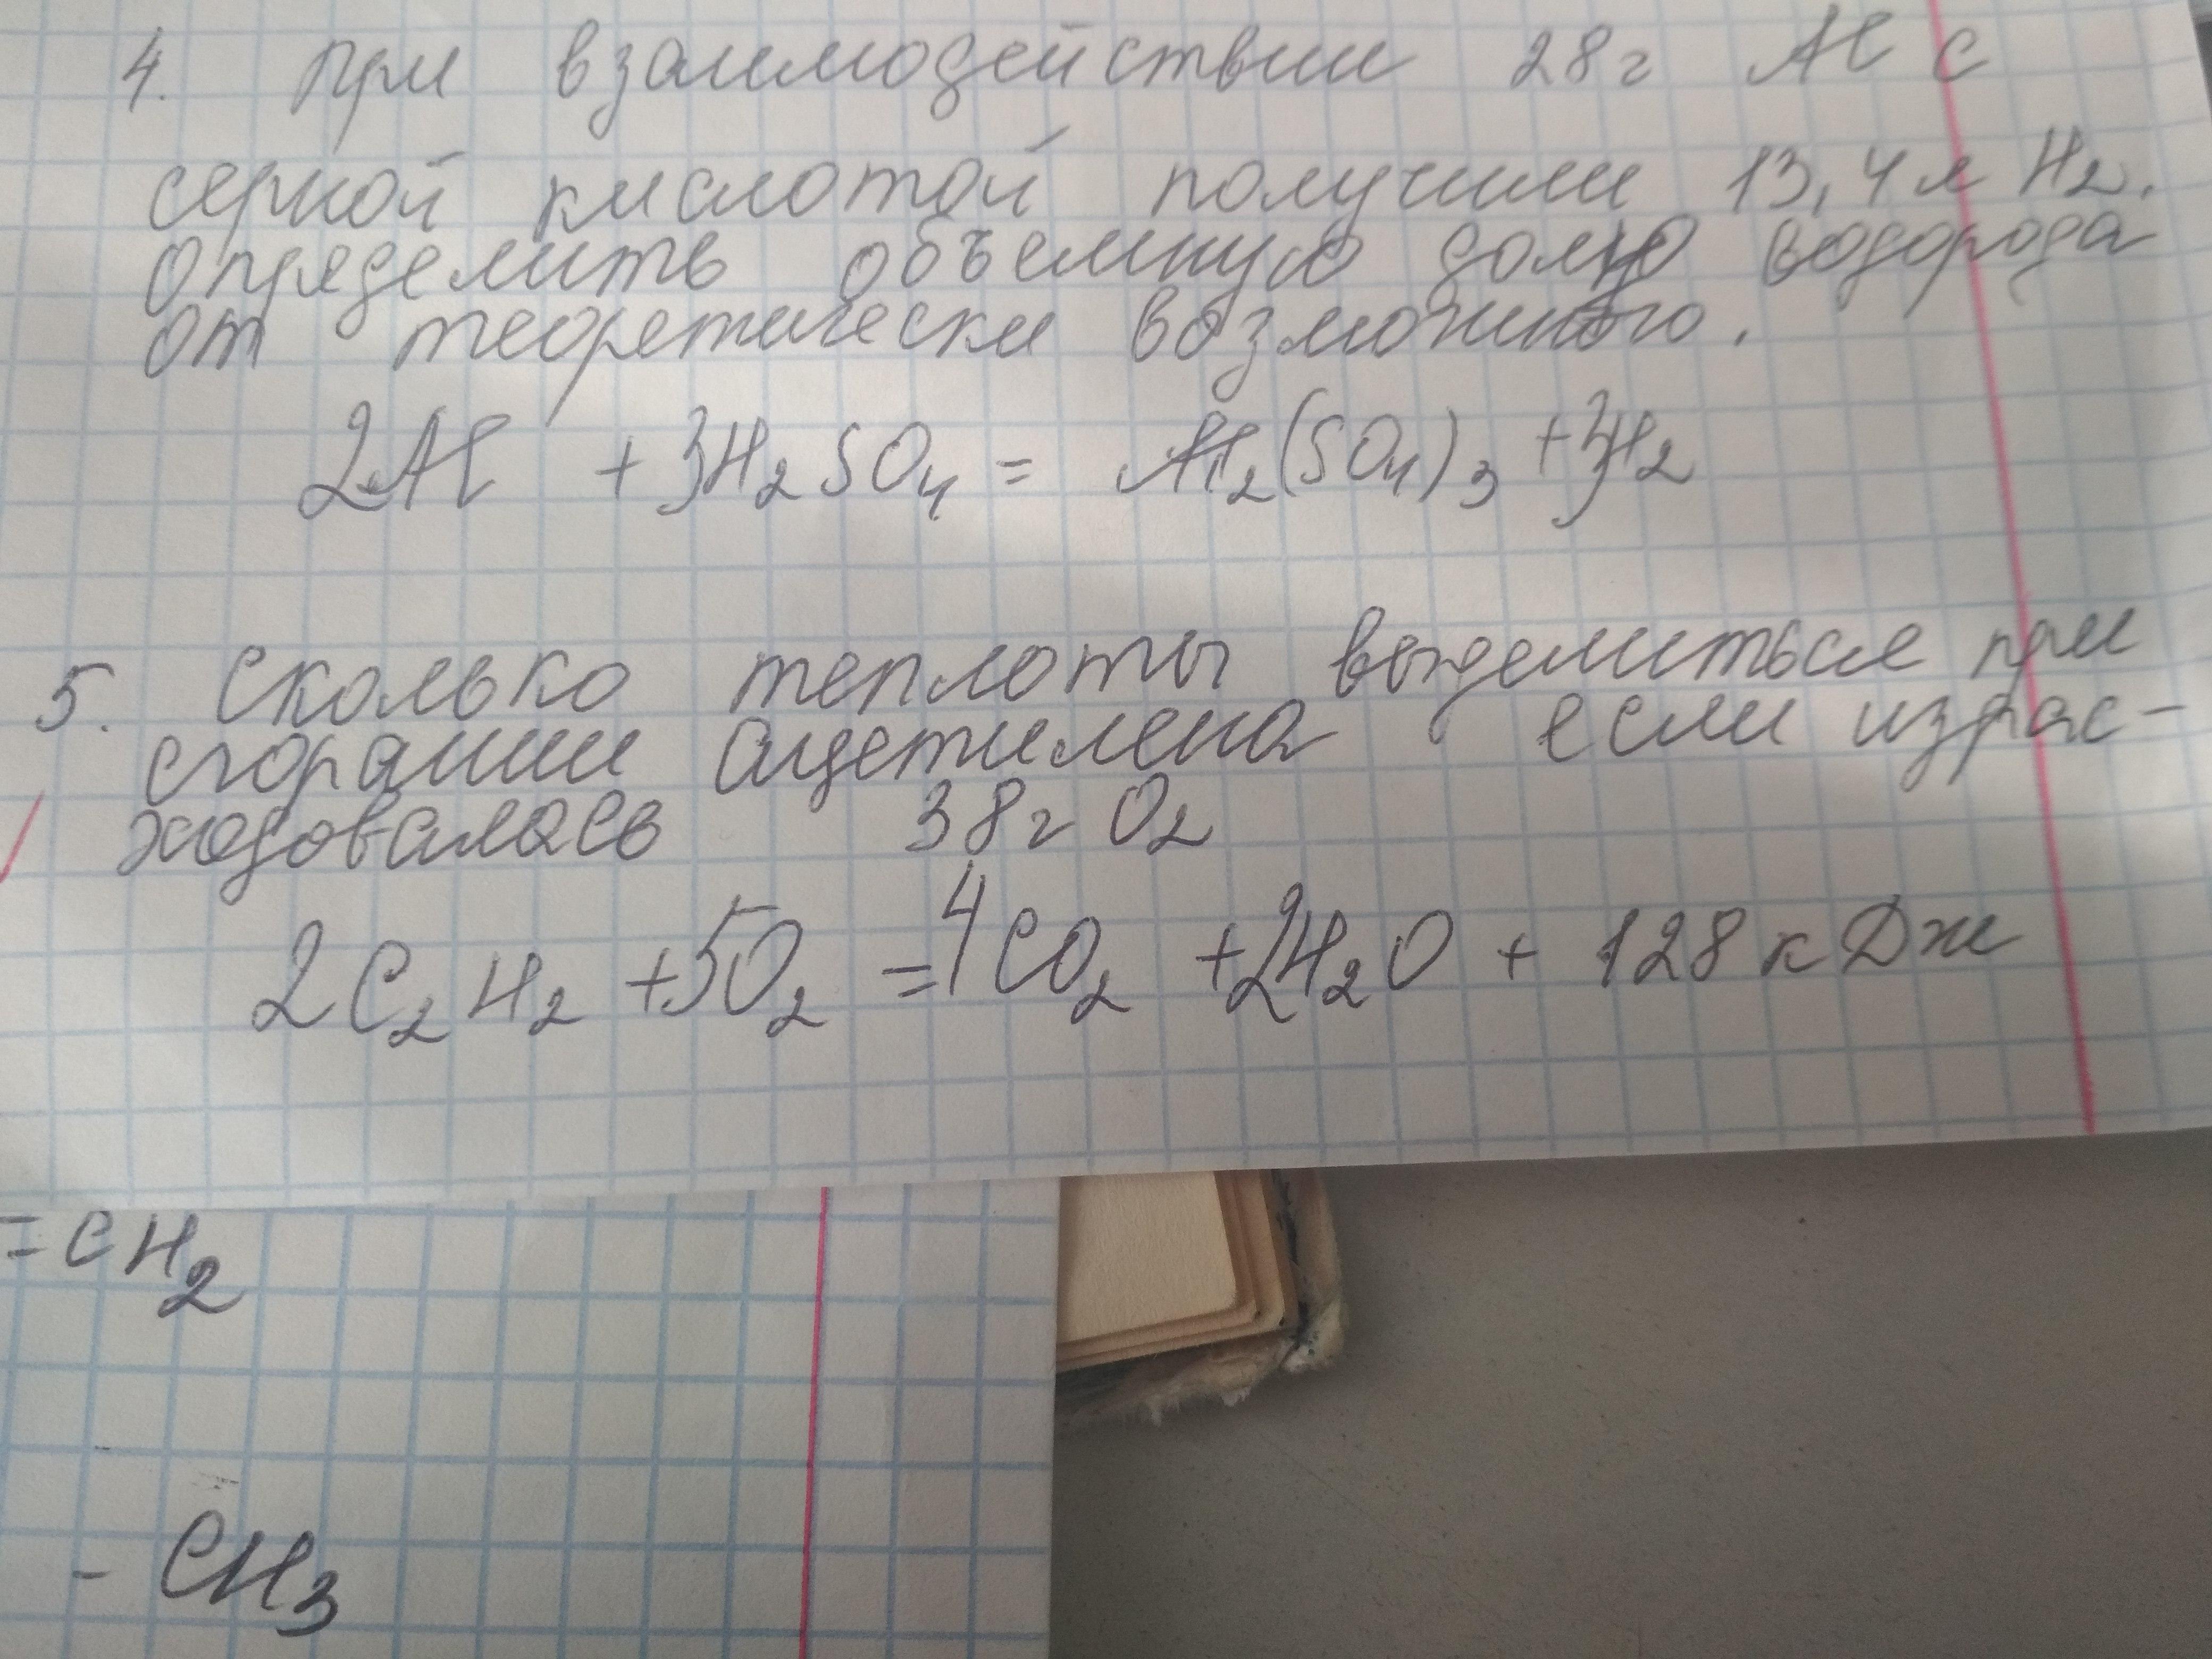 4. при взаимодействии 28г Al с
серной кислотой получили 13,4 л H₂.
Определить объемную долю водорода
от теоретически возможного.
2Al + 3H₂SO₄ = Al₂(SO₄)₃ + 3H₂
5. Сколько теплоты выделиться при
сгорании ацетилена если израс-
ходовалось 38г O₂
2C₂H₂ + 5O₂ = 4CO₂ + 2H₂O + 128 кДж
= CH₂
- CH₃